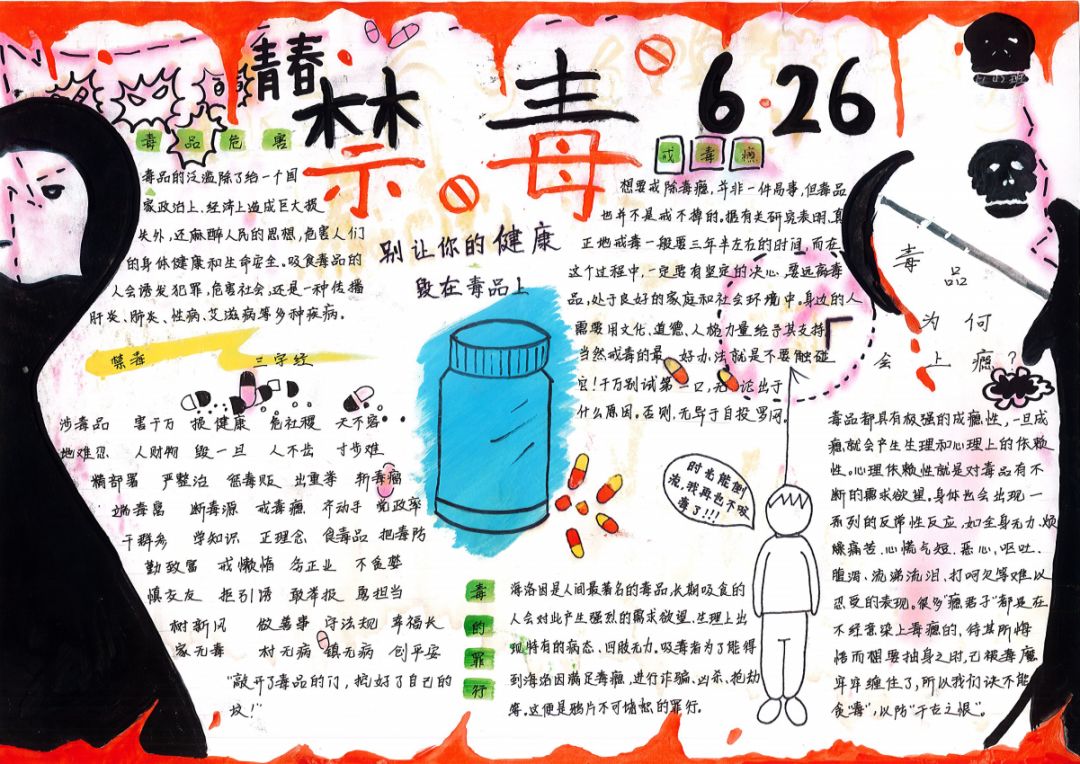 青春
禁毒 6.26
毒品危害
毒品的泛滥除了给一个国
家政治上、经济上造成巨大损
失外，还麻醉人民的思想，危害人们
的身体健康和生命安全。吸食毒品的
人会诱发犯罪，危害社会，还是一种传播
肝炎、肺炎、性病、艾滋病等多种疾病。
别让你的健康
毁在毒品上
戒毒瘾
想要戒除毒瘾，并非一件易事，但毒品
也并不是戒不掉的。据有关研究表明，真
正地戒毒一般要三年半左右的时间，而在
这个过程中，一定要有坚定的决心，要远离毒
品，处于良好的家庭和社会环境中。身边的人
需要用文化、道德、人格力量给予其支持
当然戒毒的最好办法就是不要触碰
它！千万别试第一口，无论出于
什么原因。否则，无异于自投罗网。
毒品
为何
会上瘾？
毒品都具有极强的成瘾性，一旦成
瘾就会产生生理和心理上的依赖
性。心理依赖性就是对毒品有不
断的需求欲望，身体也会出现一
系列的反常性反应，如全身无力、烦
躁痛苦、心慌气短、恶心、呕吐、
腹泻、流涕流泪、打呵欠等难以
忍受的表现。很多“瘾君子”都是在
不经意染上毒瘾的，待其所悔
悟而想要抽身之时，已被毒魔
牢牢缠住了，所以我们决不能
食“毒”，以防“千古之恨”。
禁毒 三字经
涉毒品 害千万 损健康 危社稷 天不容
地难忍 人财物 毁一旦 人不齿 寸步难
精部署 严整治 惩毒贩 出重拳 斩毒瘤
端毒窝 断毒源 戒毒瘾 齐动手 党政率
干群参 学知识 正理念 食毒品 把毒防
勤致富 戒懒惰 务正业 不贪婪
慎交友 拒引诱 敢举报 勇担当
树新风 做善事 守法规 幸福长
家无毒 村无病 镇无病 创平安
“敲开了毒品的门，挖好了自己的
坟！”
时光能倒
流，我再也不吸
毒了！！！
毒的罪行
海洛因是人间最著名的毒品，长期吸食的
人会对此产生强烈的需求欲望，生理上出
现特有的病态、四肢无力。吸毒者为了能得
到海洛因满足毒瘾，进行诈骗、凶杀、抢劫
等。这便是鸦片不可饶恕的罪行。